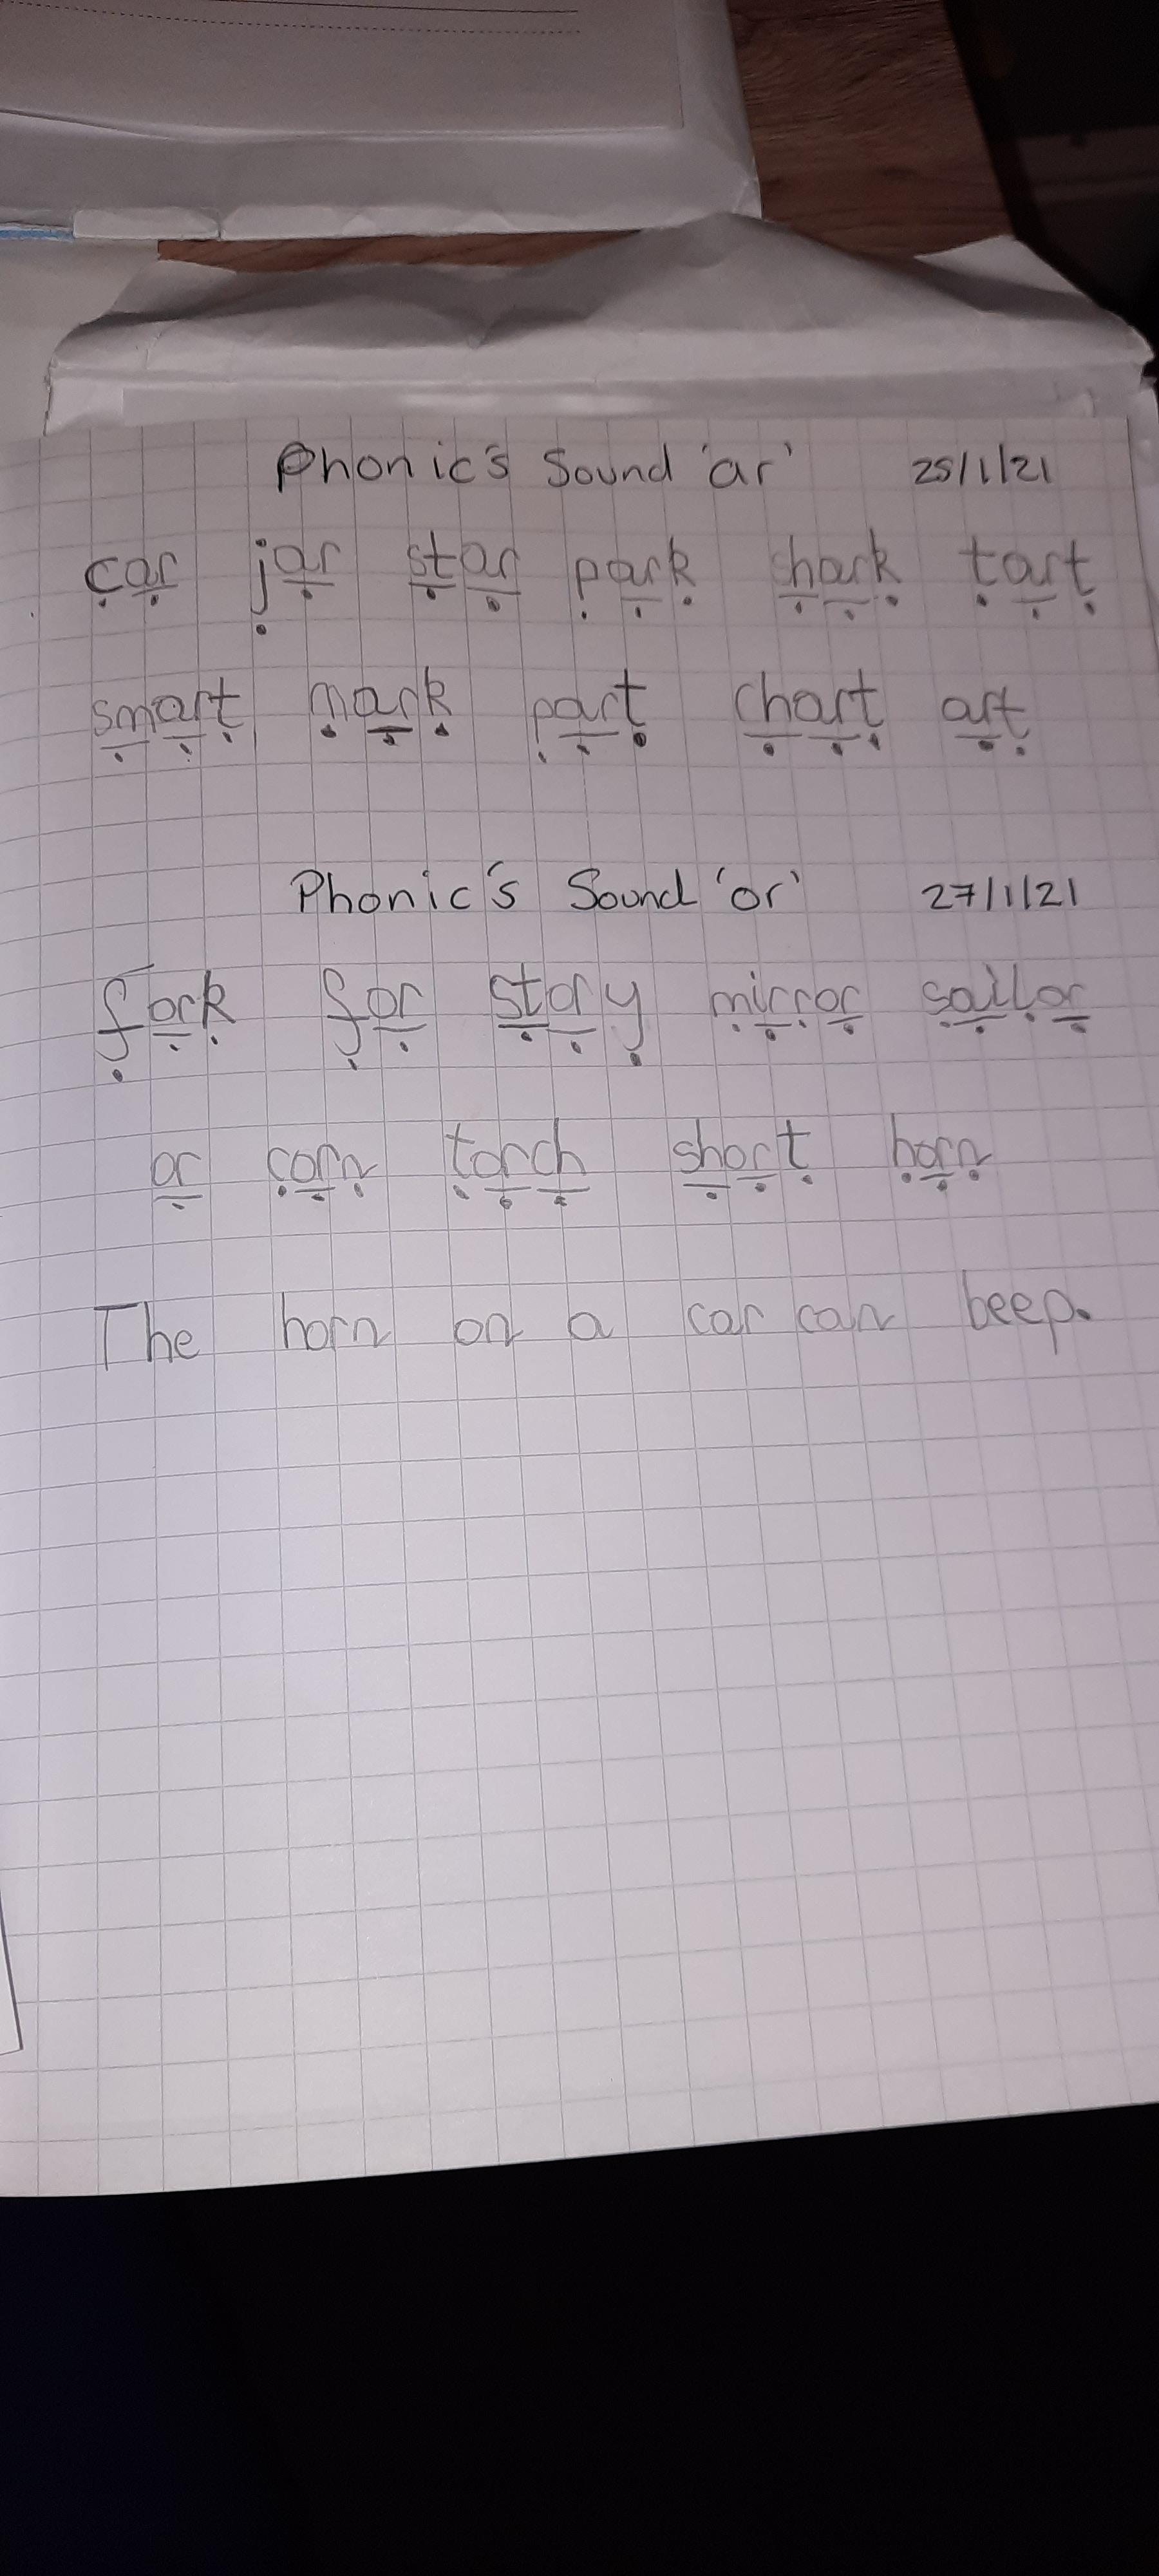 Phonic's Sound 'ar' 25/1/21
car jar star park shark tart
smart mark part chart art
Phonic's Sound 'or' 27/1/21
fork for story mirror sailor
or corn torch short horn
The horn on a car can beep.